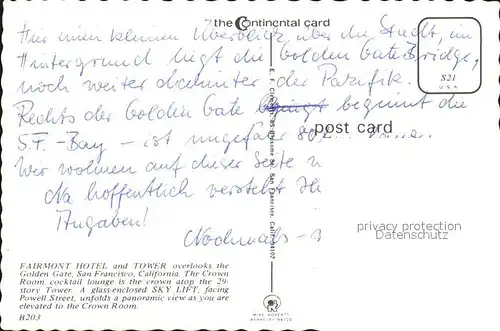 the Continental card
Nur einen kleinen Überblick über die Stadt, im
Hintergrund liegt die Golden Gate Bridge,
noch weiter dahinter der Pazifik.
Rechts der Golden Gate beginnt die
S.F.-Bay – ist ungefähr
Wir wohnen auf dieser Seite
Na hoffentlich versteht Ihr
Angaben!
Nochmals –
S21
U.S.A.
post card
privacy protection
Datenschutz
FAIRMONT HOTEL and TOWER overlooks the
Golden Gate, San Francisco, California. The Crown
Room cocktail lounge is the crown atop the 29-
story Tower. A glass-enclosed SKY LIFT, facing
Powell Street, unfolds a panoramic view as you are
elevated to the Crown Room.
B203
MIKE ROBERTS
BERKELEY 94710